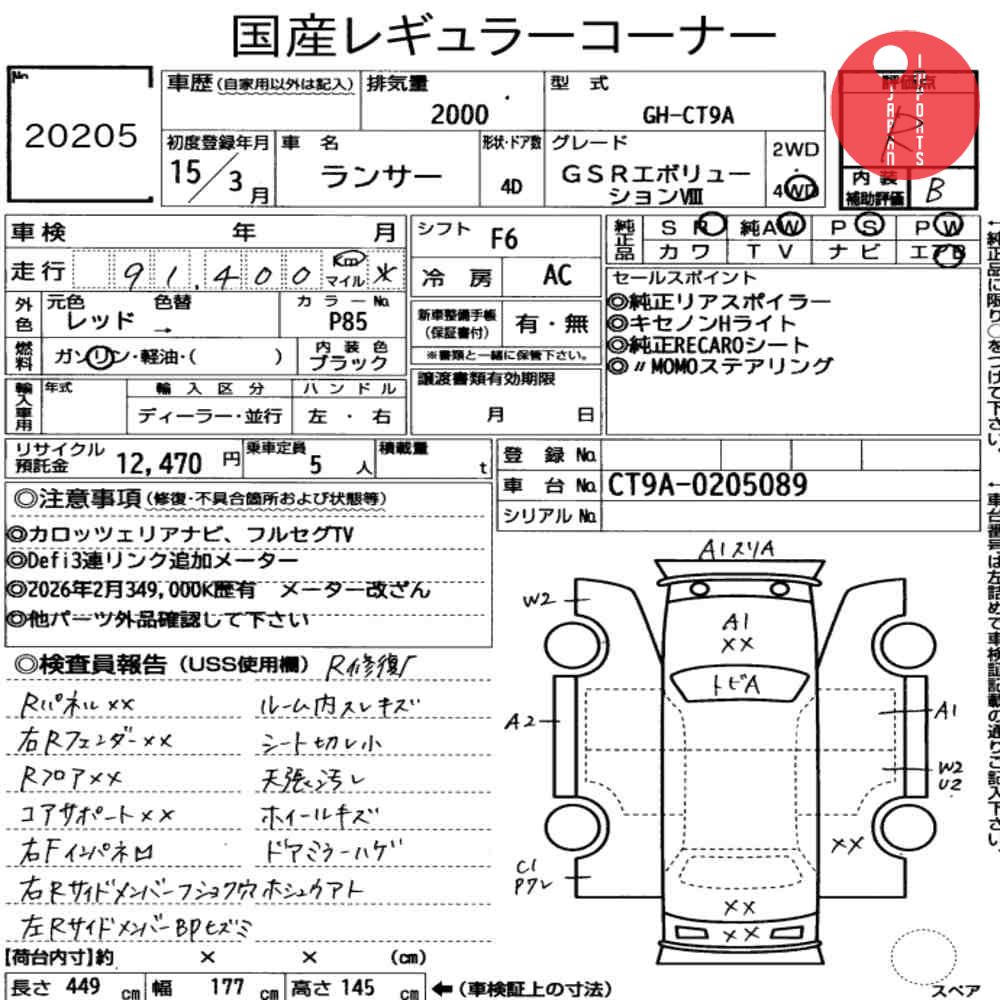 国産レギュラーコーナー
No.
20205
車歴(自家用以外は記入)
排気量
2000
型 式
GH-CT9A
評価点
R
JAPAN
IMPORTS
初度登録年月
15/3月
車 名
ランサー
形状・ドア数
4D
グレード
GSRエボリュー
ションⅧ
2WD
4WD
内装
補助評価
B
車検 年 月
走行 91,400 Km マイル ※
外色
元色 色替
レッド →
カラーNo.
P85
燃料
ガソリン・軽油・( )
内装色
ブラック
輸入車用
年式
輸入区分
ディーラー・並行
ハンドル
左・右
シフト
F6
冷房
AC
新車整備手帳
(保証書付)
有・無
※書類と一緒に保管下さい。
譲渡書類有効期限
月 日
純正品
SR 純AW PS PW
カワ TV ナビ エアB
セールスポイント
◎純正リアスポイラー
◎キセノンHライト
◎純正RECAROシート
◎〃MOMOステアリング
←純正品に限り○をつけて下さい。
リサイクル
預託金
12,470 円
乗車定員
5 人
積載量
t
登録No.
車台No. CT9A-0205089
シリアルNo.
←車台番号は左詰めで車検証記載の通りご記入下さい。
◎注意事項(修復・不具合箇所および状態等)
◎カロッツェリアナビ、フルセグTV
◎Defi3連リンク追加メーター
◎2026年2月349,000K歴有 メーター改ざん
◎他パーツ外品確認して下さい
◎検査員報告(USS使用欄) R修復
Rパネル××
ルーム内スレキズ
右Rフェンダー××
シート切レ小
Rフロア××
天張汚レ
コアサポート××
ホイールキズ
右Fインパネロ
ドアミラーハゲ
右Rサイドメンバーフショク穴ホシュウアト
左RサイドメンバーBPヒズミ
A1スリA
W2
A1
××
トビA
A2
A1
W2
U2
××
C1
Pワレ
××
××
スペア
【荷台内寸】約 × × (cm)
長さ 449 cm 幅 177 cm 高さ 145 cm ←(車検証上の寸法)